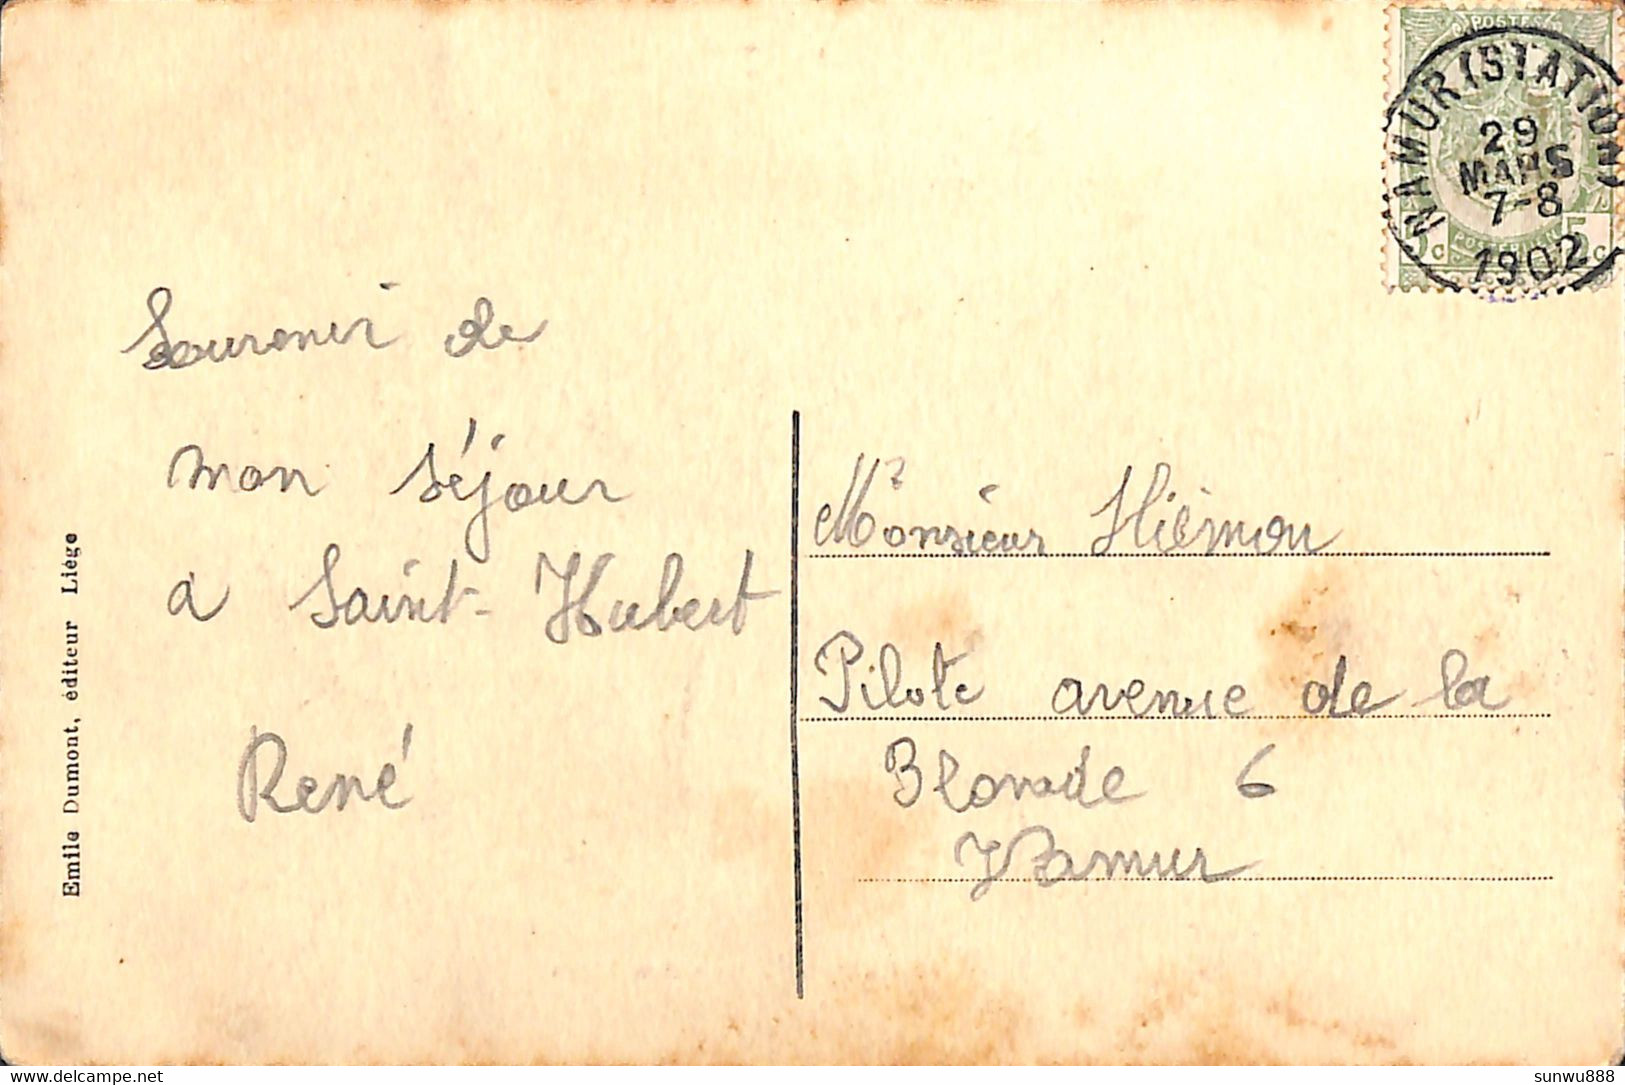 POSTES
NAMUR (STATION)
29
MARS
7-8
1902
5c
5c
Souvenir de
mon séjour
a Saint-Hubert
René
Monsieur Hiernou
Pilote avenue de la
Blonde 6
Namur
Emile Dumont, éditeur Liége
delcampe.net
sunwu888